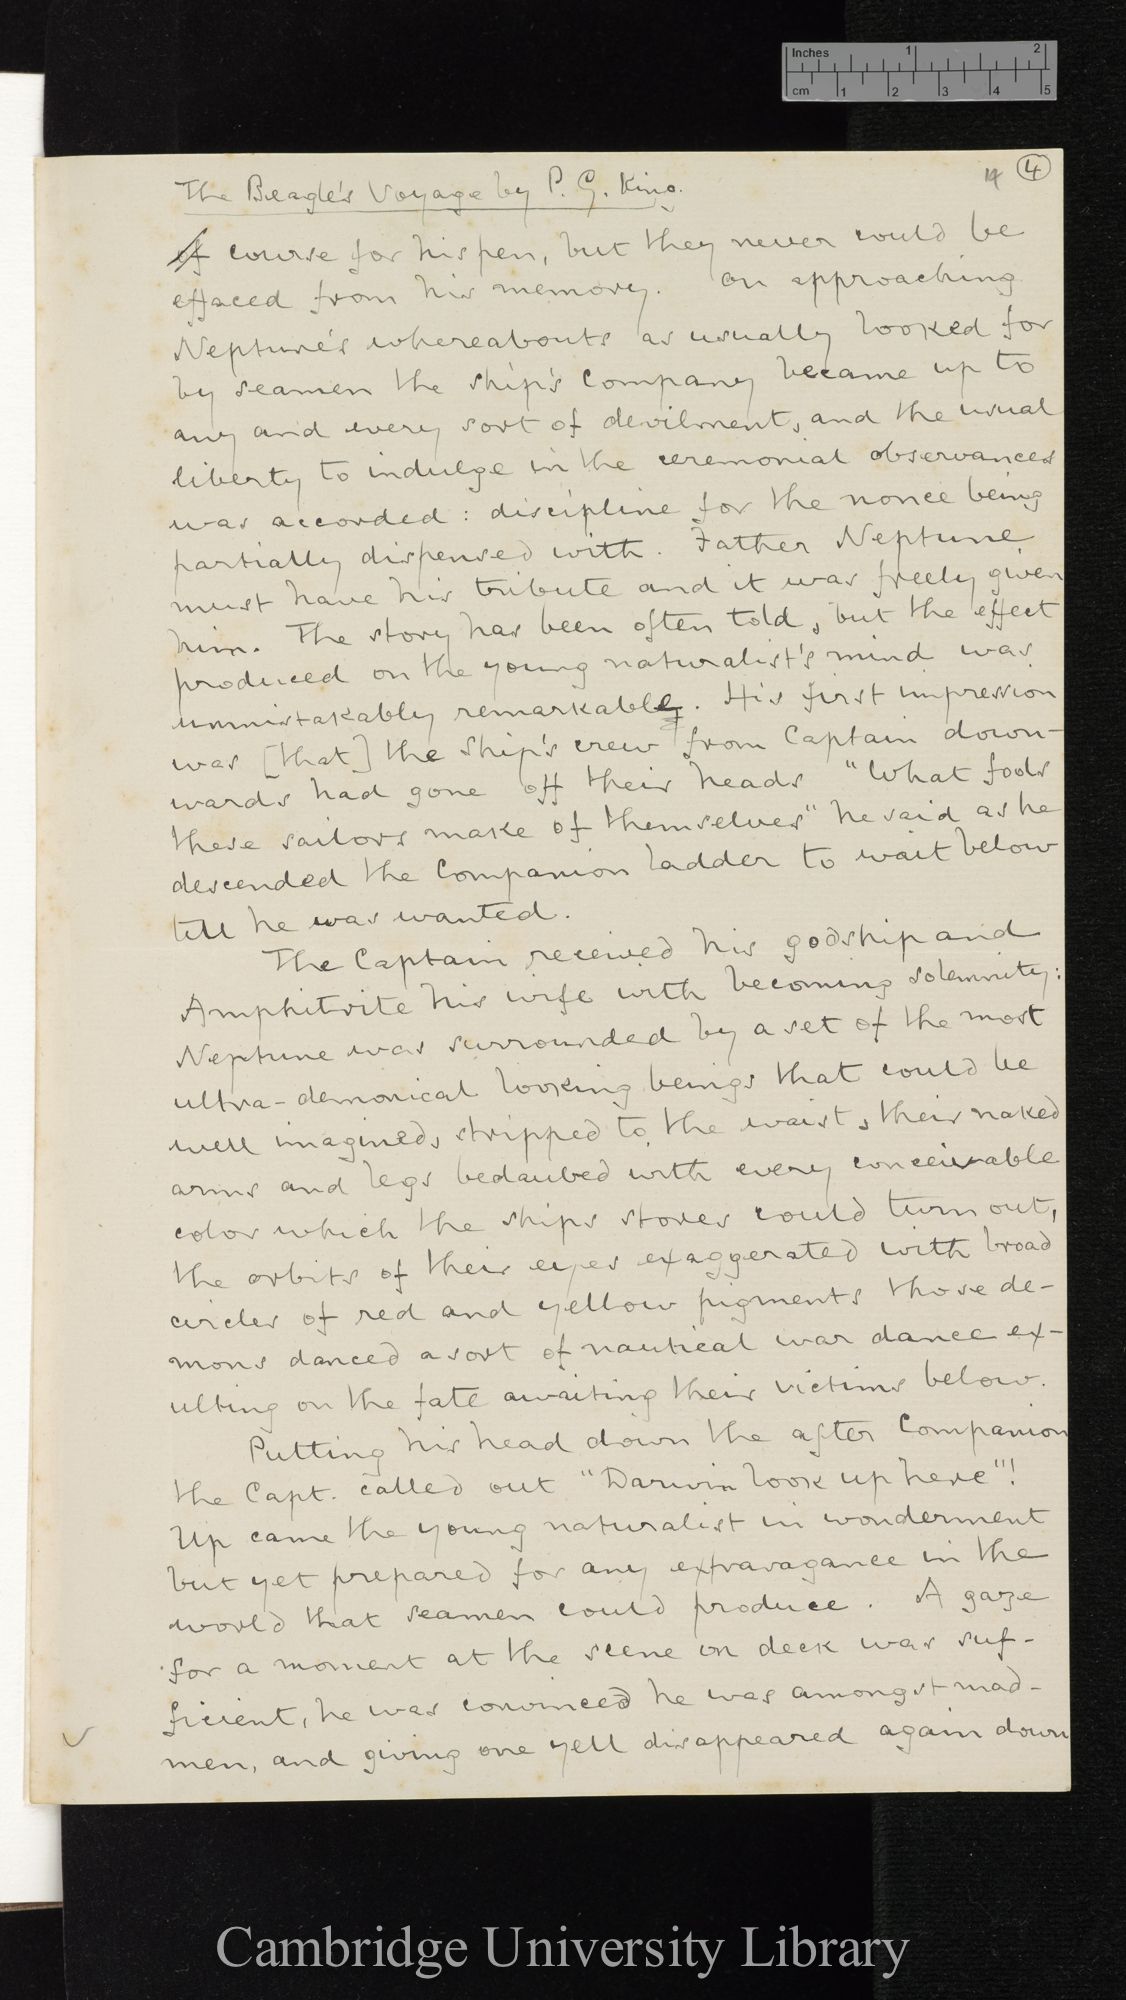 Inches 1 2
cm 1 2 3 4 5
The Beagle's Voyage by P. G. King. 14 4
Of course for his pen, but they never could be
effaced from his memory. On approaching
Neptune's whereabouts as usually looked for
by seamen the ship's Company became up to
any and every sort of devilment, and the usual
liberty to indulge in the ceremonial observances
was accorded: discipline for the nonce being
partially dispensed with. Father Neptune
must have his tribute and it was freely given
him. The story has been often told, but the effect
produced on the young naturalist's mind was
unmistakably remarkable. His first impression
was [that] the Ship's crew from Captain down-
wards had gone off their heads "What fools
these sailors make of themselves" he said as he
descended the Companion ladder to wait below
till he was wanted.
The Captain received his godship and
Amphitrite his wife with becoming solemnity:
Neptune was surrounded by a set of the most
ultra-demonical looking beings that could be
well imagined, stripped to the waist, their naked
arms and legs bedaubed with every conceivable
color which the ships stores could turn out,
the orbits of their eyes exaggerated with broad
circles of red and yellow pigments those de-
mons danced a sort of nautical war dance ex-
ulting on the fate awaiting their victims below.
Putting his head down the after Companion
the Capt. called out "Darwin look up here"!
Up came the young naturalist in wonderment
but yet prepared for any extravagance in the
world that seamen could produce. A gaze
for a moment at the scene on deck was suf-
ficient, he was convinced he was amongst mad-
men, and giving one yell disappeared again down
Cambridge University Library